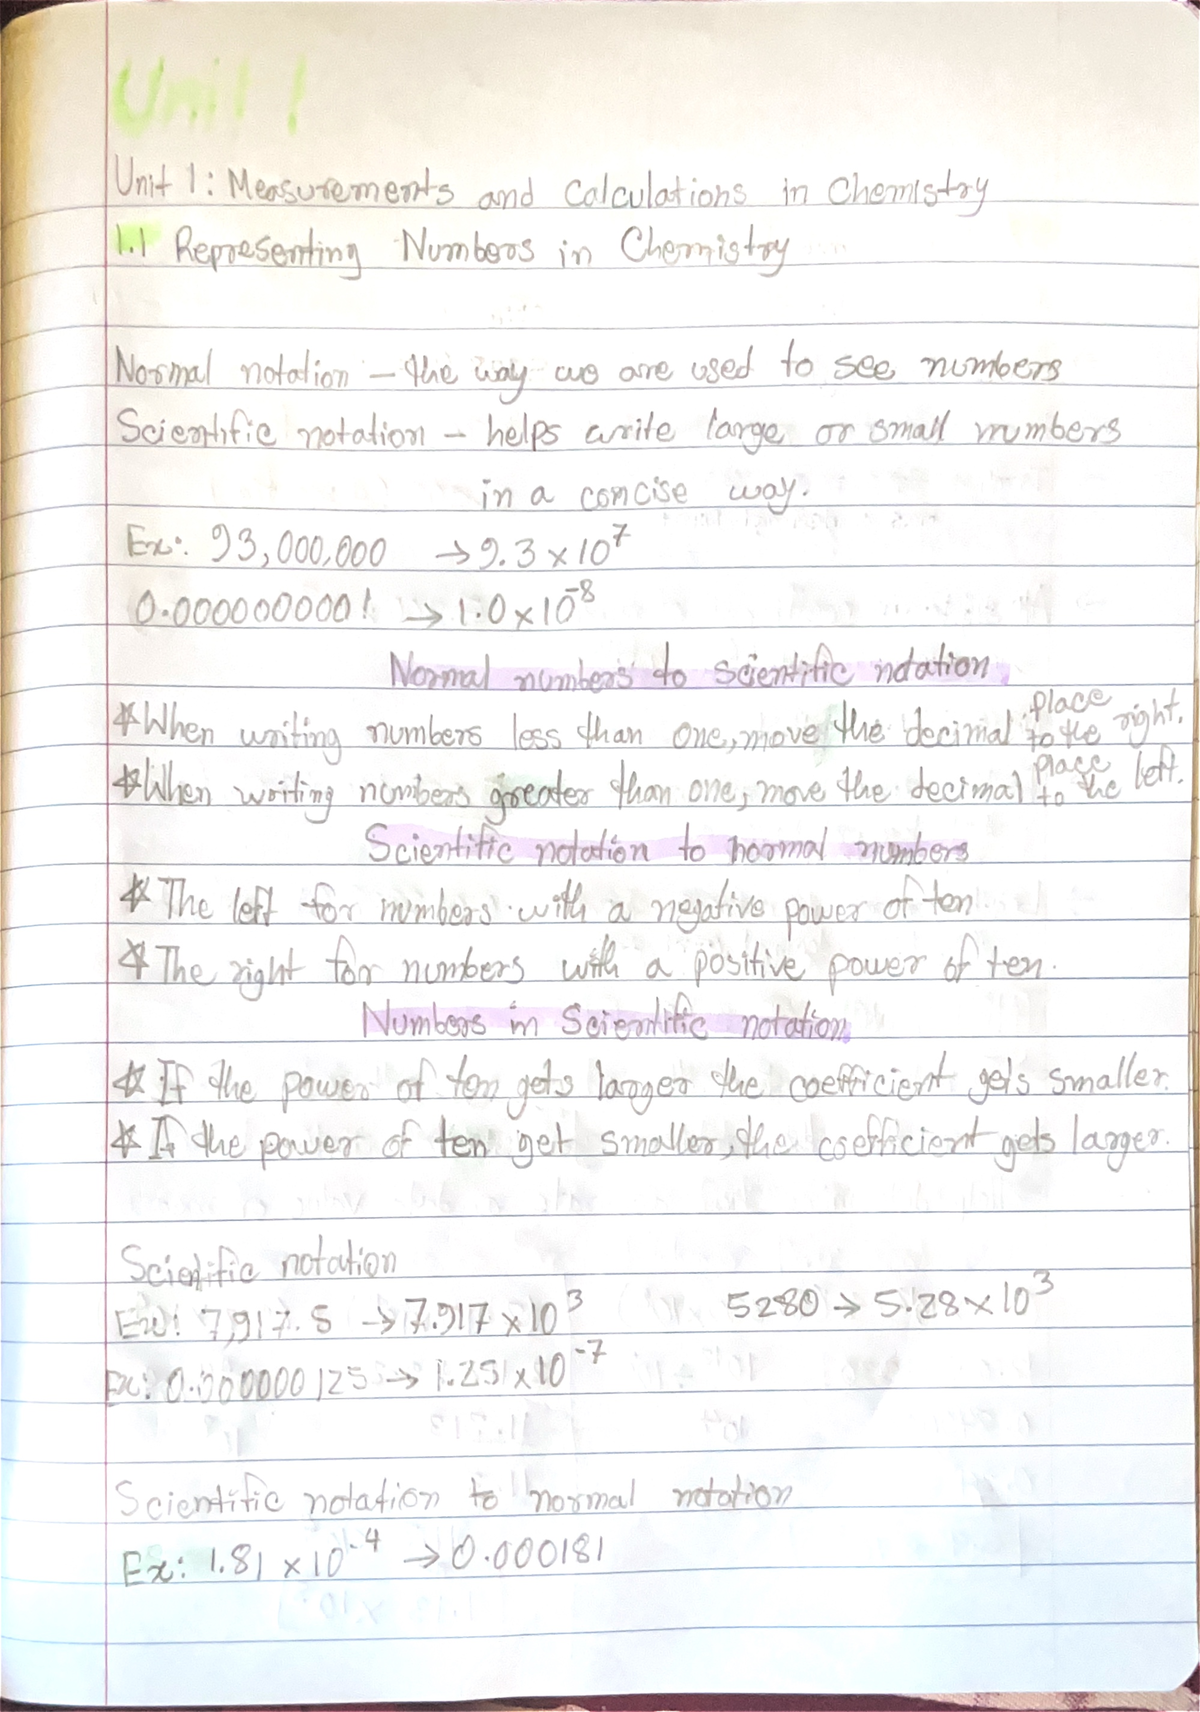 Unit 1
Unit 1: Measurements and Calculations in Chemistry
1.1 Representing Numbers in Chemistry
Normal notation – the way we are used to see numbers
Scientific notation – helps write large or small numbers
in a concise way.
Ex: 93,000,000 → 9.3 × 10⁷
0.0000000001 → 1.0 × 10⁻⁸
Normal numbers to scientific notation.
☆ When writing numbers less than one, move the decimal place to the right.
☆ When writing numbers greater than one, move the decimal place to the left.
Scientific notation to normal numbers
☆ The left for numbers with a negative power of ten
☆ The right for numbers with a positive power of ten.
Numbers in Scientific notation.
☆ If the power of ten gets larger the coefficient gets smaller.
☆ If the power of ten get smaller, the coefficient gets larger.
Scientific notation
Ex: 7,917.5 → 7.917 × 10³ 5280 → 5.28 × 10³
Ex: 0.000000125 → 1.251 × 10⁻⁷
Scientific notation to normal notation
Ex: 1.81 × 10⁻⁴ → 0.000181